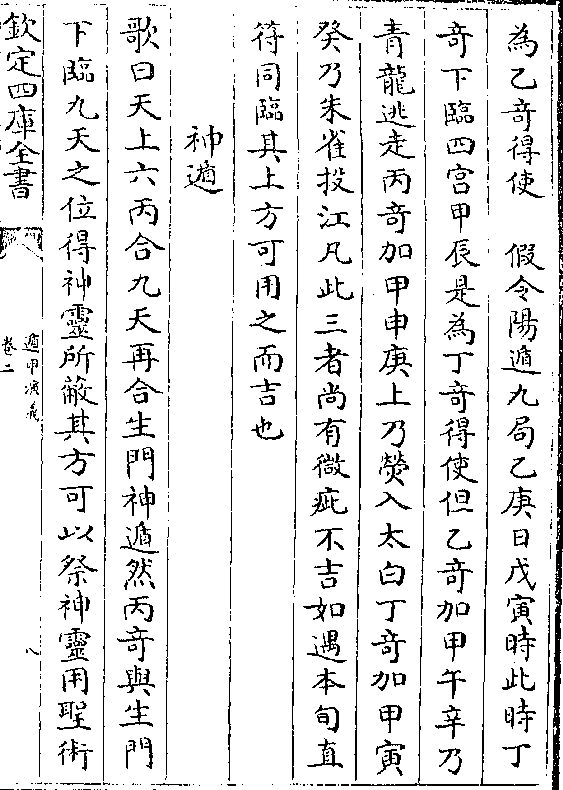 為乙奇得使　假令陽遁九局乙庚日戊寅時此時丁
奇下臨四宮甲辰是為丁奇得使但乙奇加甲午辛乃
青龍逃走丙奇加甲申庚上乃熒入太白丁奇加甲寅
癸乃朱雀投江凡此三者尚有微疵不吉如遇本旬直
符同臨其上方可用之而吉也
神遁
歌曰天上六丙合九天再合生門神遁然丙奇與生門
下臨九天之位得神靈所蔽其方可以祭神靈用聖術
欽定四庫全書
遁甲演義
卷二
八